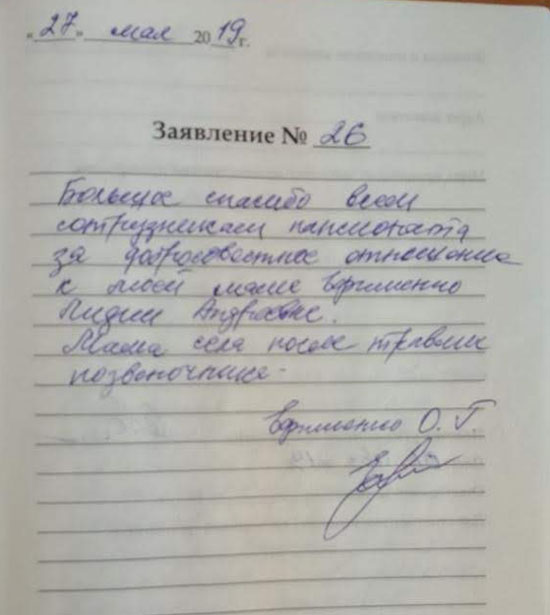 « 27 » мая 2019 г.
Заявление № 26
Большое спасибо всем
сотрудникам пансионата
за добросовестное отношение
к моей маме
Лидии Андреевне.
Мама села после травмы
позвоночника.
О. Г.